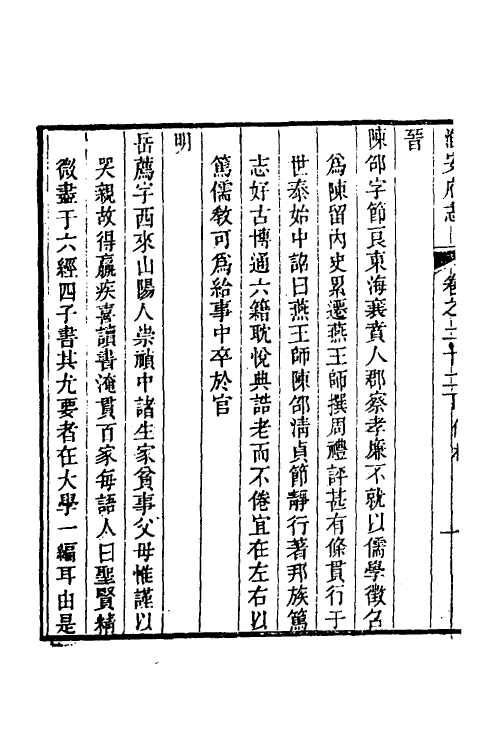 淮安府志
卷之二十三
晉
陳邵字節良東海襄賁人郡察孝廉不就以儒學徵召
爲陳留内史累遷燕王師撰周禮評甚有條貫行于
世泰始中詔曰燕王師陳邵清貞節靜行著邦族篤
志好古博通六籍耽悅典誥老而不倦宜在左右以
篤儒教可爲給事中卒於官
明
岳薦字西來山陽人崇禎中諸生家貧事父母惟謹以
哭親故得羸疾喜讀書淹貫百家每語人曰聖賢精
微盡于六經四子書其尤要者在大學一編耳由是